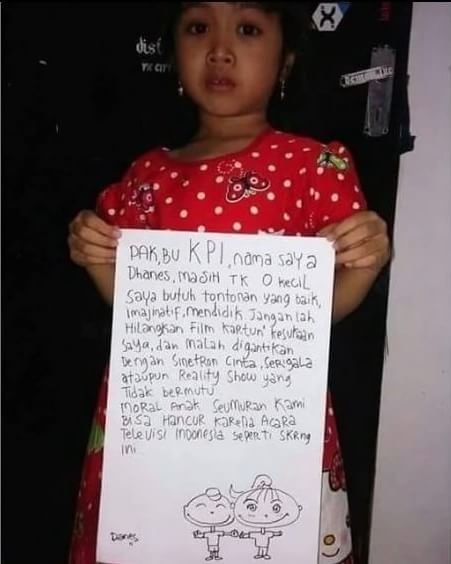 dist
PAK,BU KPI, nama saya
Dhanes, masih TK 0 kecil
Saya butuh tontonan yang baik,
imajinatif, mendidik Jangan lah
Hilangkan Film kartun' kesukaan
Saya, dan malah digantikan
Dengan Sinetron Cinta, Serigala
ataupun Reality Show yang
Tidak bermutu
Moral Anak Seumuran Kami
Bisa Hancur Karena Acara
Televisi Indonesia seperti SKRng
ini..
Danes